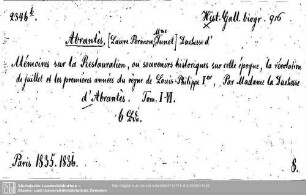 2346k
Hist. Gall. biogr. 916
Abrantes, [Laure Permon Mme Junot] Duchesse d'
Mémoires sur la Restauration, ou souvenirs historiques sur cette époque, la révolution
de juillet et les premières années du règne de Louis-Philippe Ier, Par Madame la Duchesse
d'Abrantès. Tom. I-VI.
6 Bde.
Paris 1835. 1836.
8.